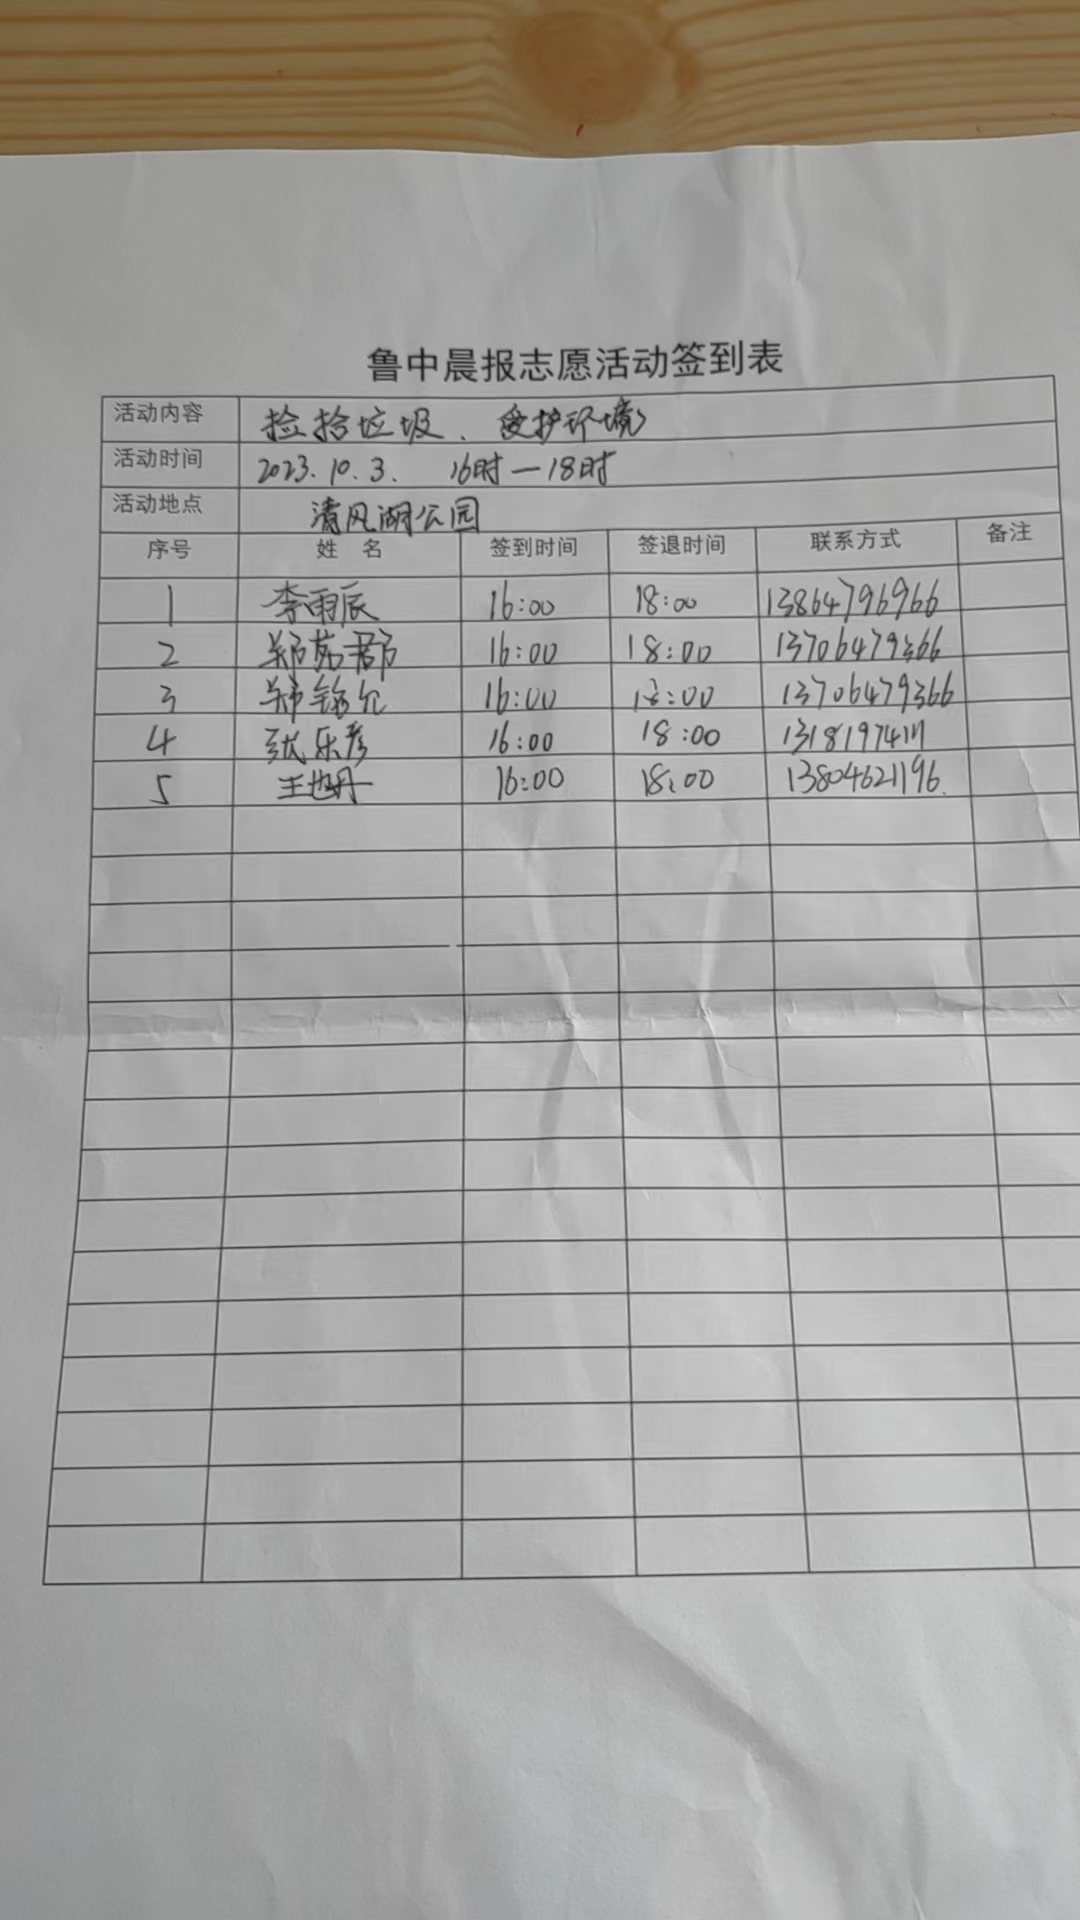 鲁中晨报志愿活动签到表
活动内容 捡拾垃圾、爱护环境
活动时间 2023.10.3. 16时—18时
活动地点 清风湖公园
序号 姓 名 签到时间 签退时间 联系方式 备注
1 李雨辰 16:00 18:00 13864796966
2 郑茹郡 16:00 18:00 13706479366
3 郑铭允 16:00 18:00 13706479366
4 张乐彦 16:00 18:00
5 王也丹 16:00 18:00 13804621196.